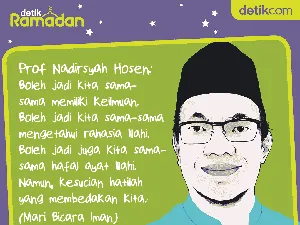 detik
Ramadan
detikcom
Prof Nadirsyah Hosen:
Boleh jadi kita sama-
sama memiliki keilmuan.
Boleh jadi kita sama-sama
mengetahui rahasia Ilahi.
Boleh jadi juga kita sama-
sama hafal ayat Ilahi.
Namun, kesucian hatilah
yang membedakan kita.
(Mari Bicara Iman)